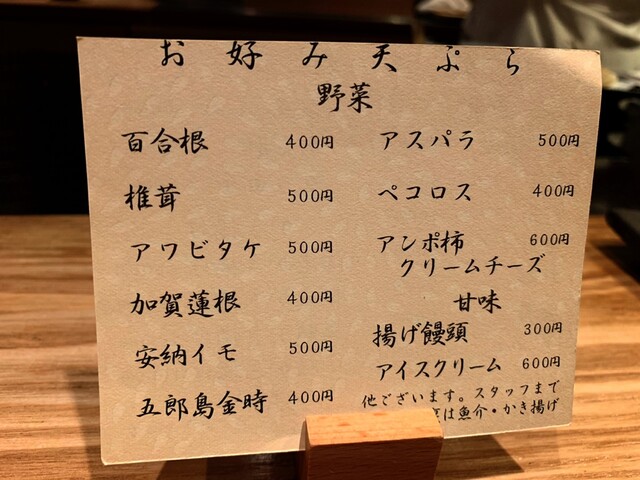 お好み天ぷら
野菜
百合根 400円
椎茸 500円
アワビタケ 500円
加賀蓮根 400円
安納イモ 500円
五郎島金時 400円
アスパラ 500円
ペコロス 400円
アンポ柿 600円
クリームチーズ
甘味
揚げ饅頭 300円
アイスクリーム 600円
他ございます。スタッフまで
は魚介・かき揚げ